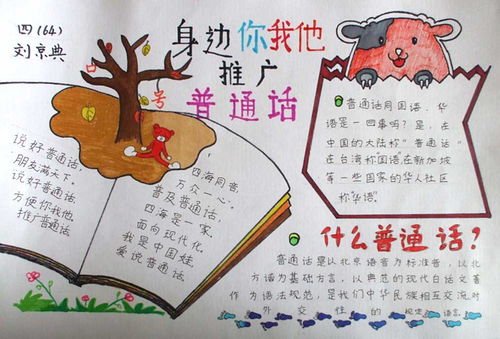 四(64)
刘京典
身边你我他
推广
普通话
号
说好普通话,
朋友满天下。
说好普通话
方便你我他
推广普通话
四海同音
万众一心。
普及普通话,
四海是一家
面向现代化。
我是中国娃
爱说普通话
普通话同国语、华
语是一回事吗?是,在
中国的大陆称"普通话"
在台湾称国语在新加坡
等一些国家的华人社区
称"华语"
什么普通话?
普通话是以北京语音为标准音,以北
方话为基础方言,以典范的现代白话文著
作为语法规范,是我们中华民族相互交流对
外交往的规定语言